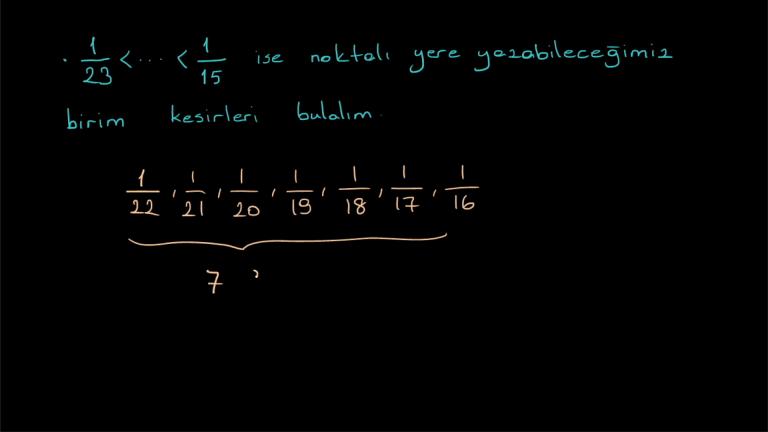 . 1/23 < ... < 1/15 ise noktalı yere yazabileceğimiz
birim kesirleri bulalım.
1/22, 1/21, 1/20, 1/19, 1/18, 1/17, 1/16
7